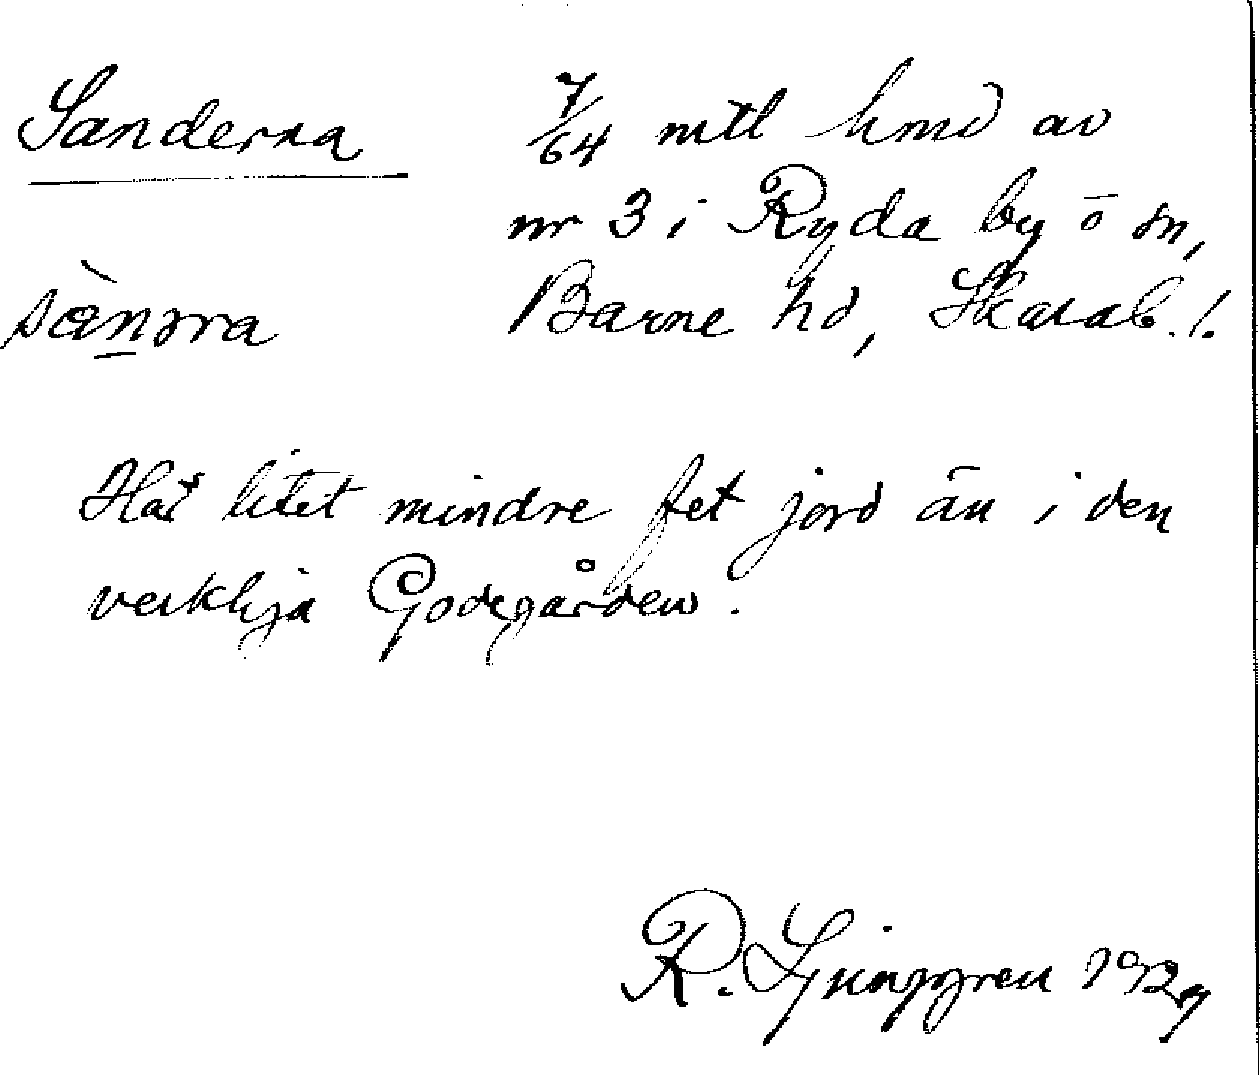 Sanderna
7/64 mtl hmd av
nr 3 i Ryda by o sn,
sæ̀n̲ɔra
Barne hd, Skarab. l.
Har litet mindre fet jord än i den
verkliga Godegården.
R. Ljunggren 1929